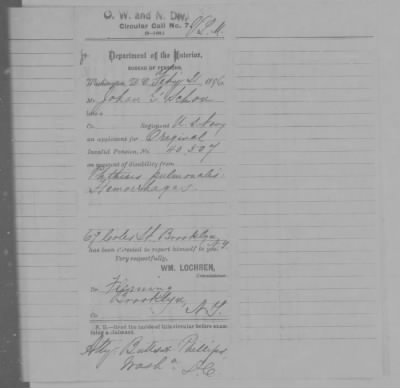 O. W. and N. Div.
Circular Call No. 7.
Department of the Interior,
BUREAU OF PENSIONS,
Washington, D. C., Feby 1896
Mr John E. Schou
late a
Co. Regiment U. S. Navy
an applicant for Original
Invalid Pension, No. 40.527
on account of disability from
Phthisis pulmonalis
Hemorrhages
67 Coles St. Brooklyn, N.Y.
has been directed to report himself to you.
Very respectfully,
WM. LOCHREN,
Commissioner.
Dr.
Brooklyn,
Co. N. Y.
N. B.—Read the inside of this circular before examining a claimant.
Atty Butts & Phillips
Wash n D.C.